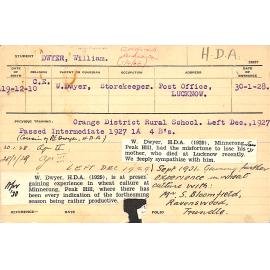 STUDENT
DWYER, William.
H.D.A
19-12-10 C.E. W.Dwyer, Storekeeper. Post Office, LUCKNOW. 30-1-28.
PREVIOUS TRAINING
Orange District Rural School. Left Dec., 1927
Passed Intermediate 1927 1A 4 B's.
LEFT DEC 1929
W. Dwyer, H.D.A. (1929), Minnerong, Peak Hill, had the misfortune to lose his mother, who died at Lucknow recently. We deeply sympathise with him.
W. Dwyer, H.D.A. (1929), is at present gaining experience in wheat culture at Minnerong, Peak Hill, where there has been every indication of the forthcoming season being rather productive.
Sept 1931. Gaining further
experience in wheat
culture with:-
Mr. S. Bloomfield,
Ravenswood,
Trundle.